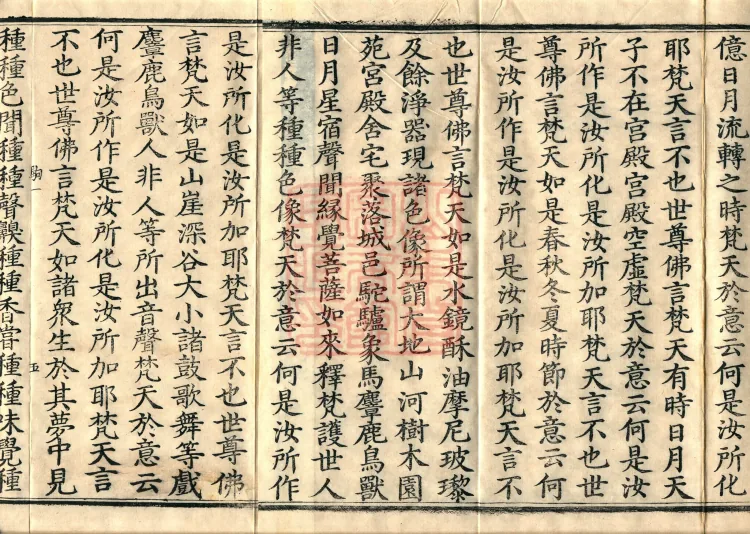 億日月流轉之時梵天於意云何是汝所化
耶梵天言不也世尊佛言梵天有時日月天
子不在宫殿宫殿空虛梵天於意云何是汝
所作是汝所化是汝所加耶梵天言不也世
尊佛言梵天如是春秋冬夏時節於意云何
是汝所作是汝所化是汝所加耶梵天言不
也世尊佛言梵天如是水鏡酥油摩尼玻瓈
及餘淨器現諸色像所謂大地山河樹木園
苑宮殿舍宅聚落城邑駝驢象馬麞鹿鳥獸
日月星宿聲聞緣覺菩薩如來釋梵護世人
非人等種種色像梵天於意云何是汝所作
是汝所化是汝所加耶梵天言不也世尊佛
言梵天如是山崖深谷大小諸鼓歌舞等戲
麞鹿鳥獸人非人等所出音聲梵天於意云
何是汝所作是汝所化是汝所加耶梵天言
不也世尊佛言梵天如諸衆生於其夢中見
種種色聞種種聲齅種種香嘗種種味覺種